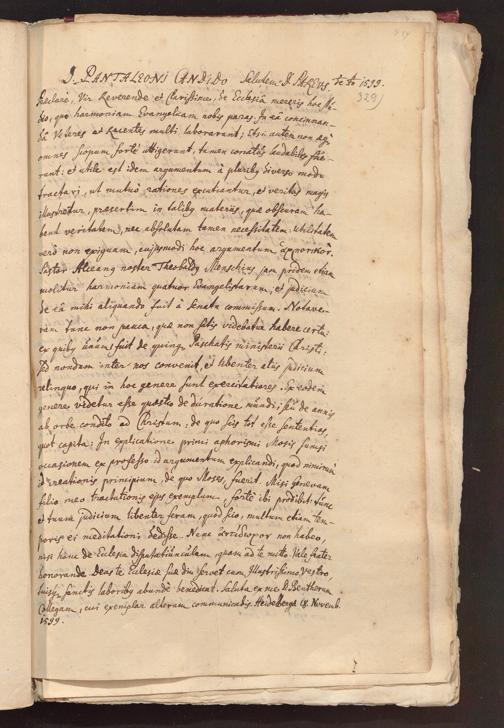 D. PANTALEONI CANDIDO Salutem D. PAREUS 1599.
329)
Praeclare, Vir Reverende et Clarissime, de Ecclesia mereris hoc
dio, quo harmoniam Evangelicam nobis paras. In ea concinnan-
da Veteres et Recentes multi laborarunt; Etsi autem non
omnes scopum forte attigerunt, tamen conatus laudabiles fue-
runt: et utile est idem argumentum a pluribus diverso modo
tractari, ut mutuo rationes excutiantur, et veritas magis
illustretur, praesertim in talibus materiis, quae obscuram ha-
bent veritatem, nec absolutam tamen necessitatem: utilitatem
vero non exiguam, cujusmodi hoc argumentum
Pastor noster Theobaldus Menschius, jam pridem etiam
molitur harmoniam quatuor Evangelistarum, et judicium
de ea mihi aliquando fuit a Senatu commissum. Notave-
ram tunc non pauca, quae non satis videbatur habere certa:
ex quibus unum fuit de quinque Paschatis ministerii Christi:
sed nondum inter nos convenit, et libenter aliis judicium
relinquo, qui in hoc genere sunt exercitatiores. Ejusdem
generis videtur esse quaestio de duratione mundi, seu de annis
ab orbe condito ad Christum: de quo scis tot esse sententias,
quot capita: In explicatione primi aphorismi Mosis sumsi
occasionem ex professo id argumentum explicandi, quod nimirum
id creationis principium, de quo Moses, fuerit. Misi Genevam
filio meo tractationis ejus exemplum, forte ibi prodibit: tunc
et tuum judicium libenter feram, quod scio, multum etiam tem-
poris ei meditationi dedisse. Nunc ἀντίδωρον non habeo,
nisi hanc de Ecclesia disputatiunculam, quam ad te mitto. Vale frater
honorande. Deus te Ecclesiae suae diu servet cum Illustrissimo vestro,
tuisque sanctis laboribus abunde benedicat. Saluta ex me D. Beutherum
Collegam, cui exemplar alterum communicabis. Heidelbergae Novemb.
1599.